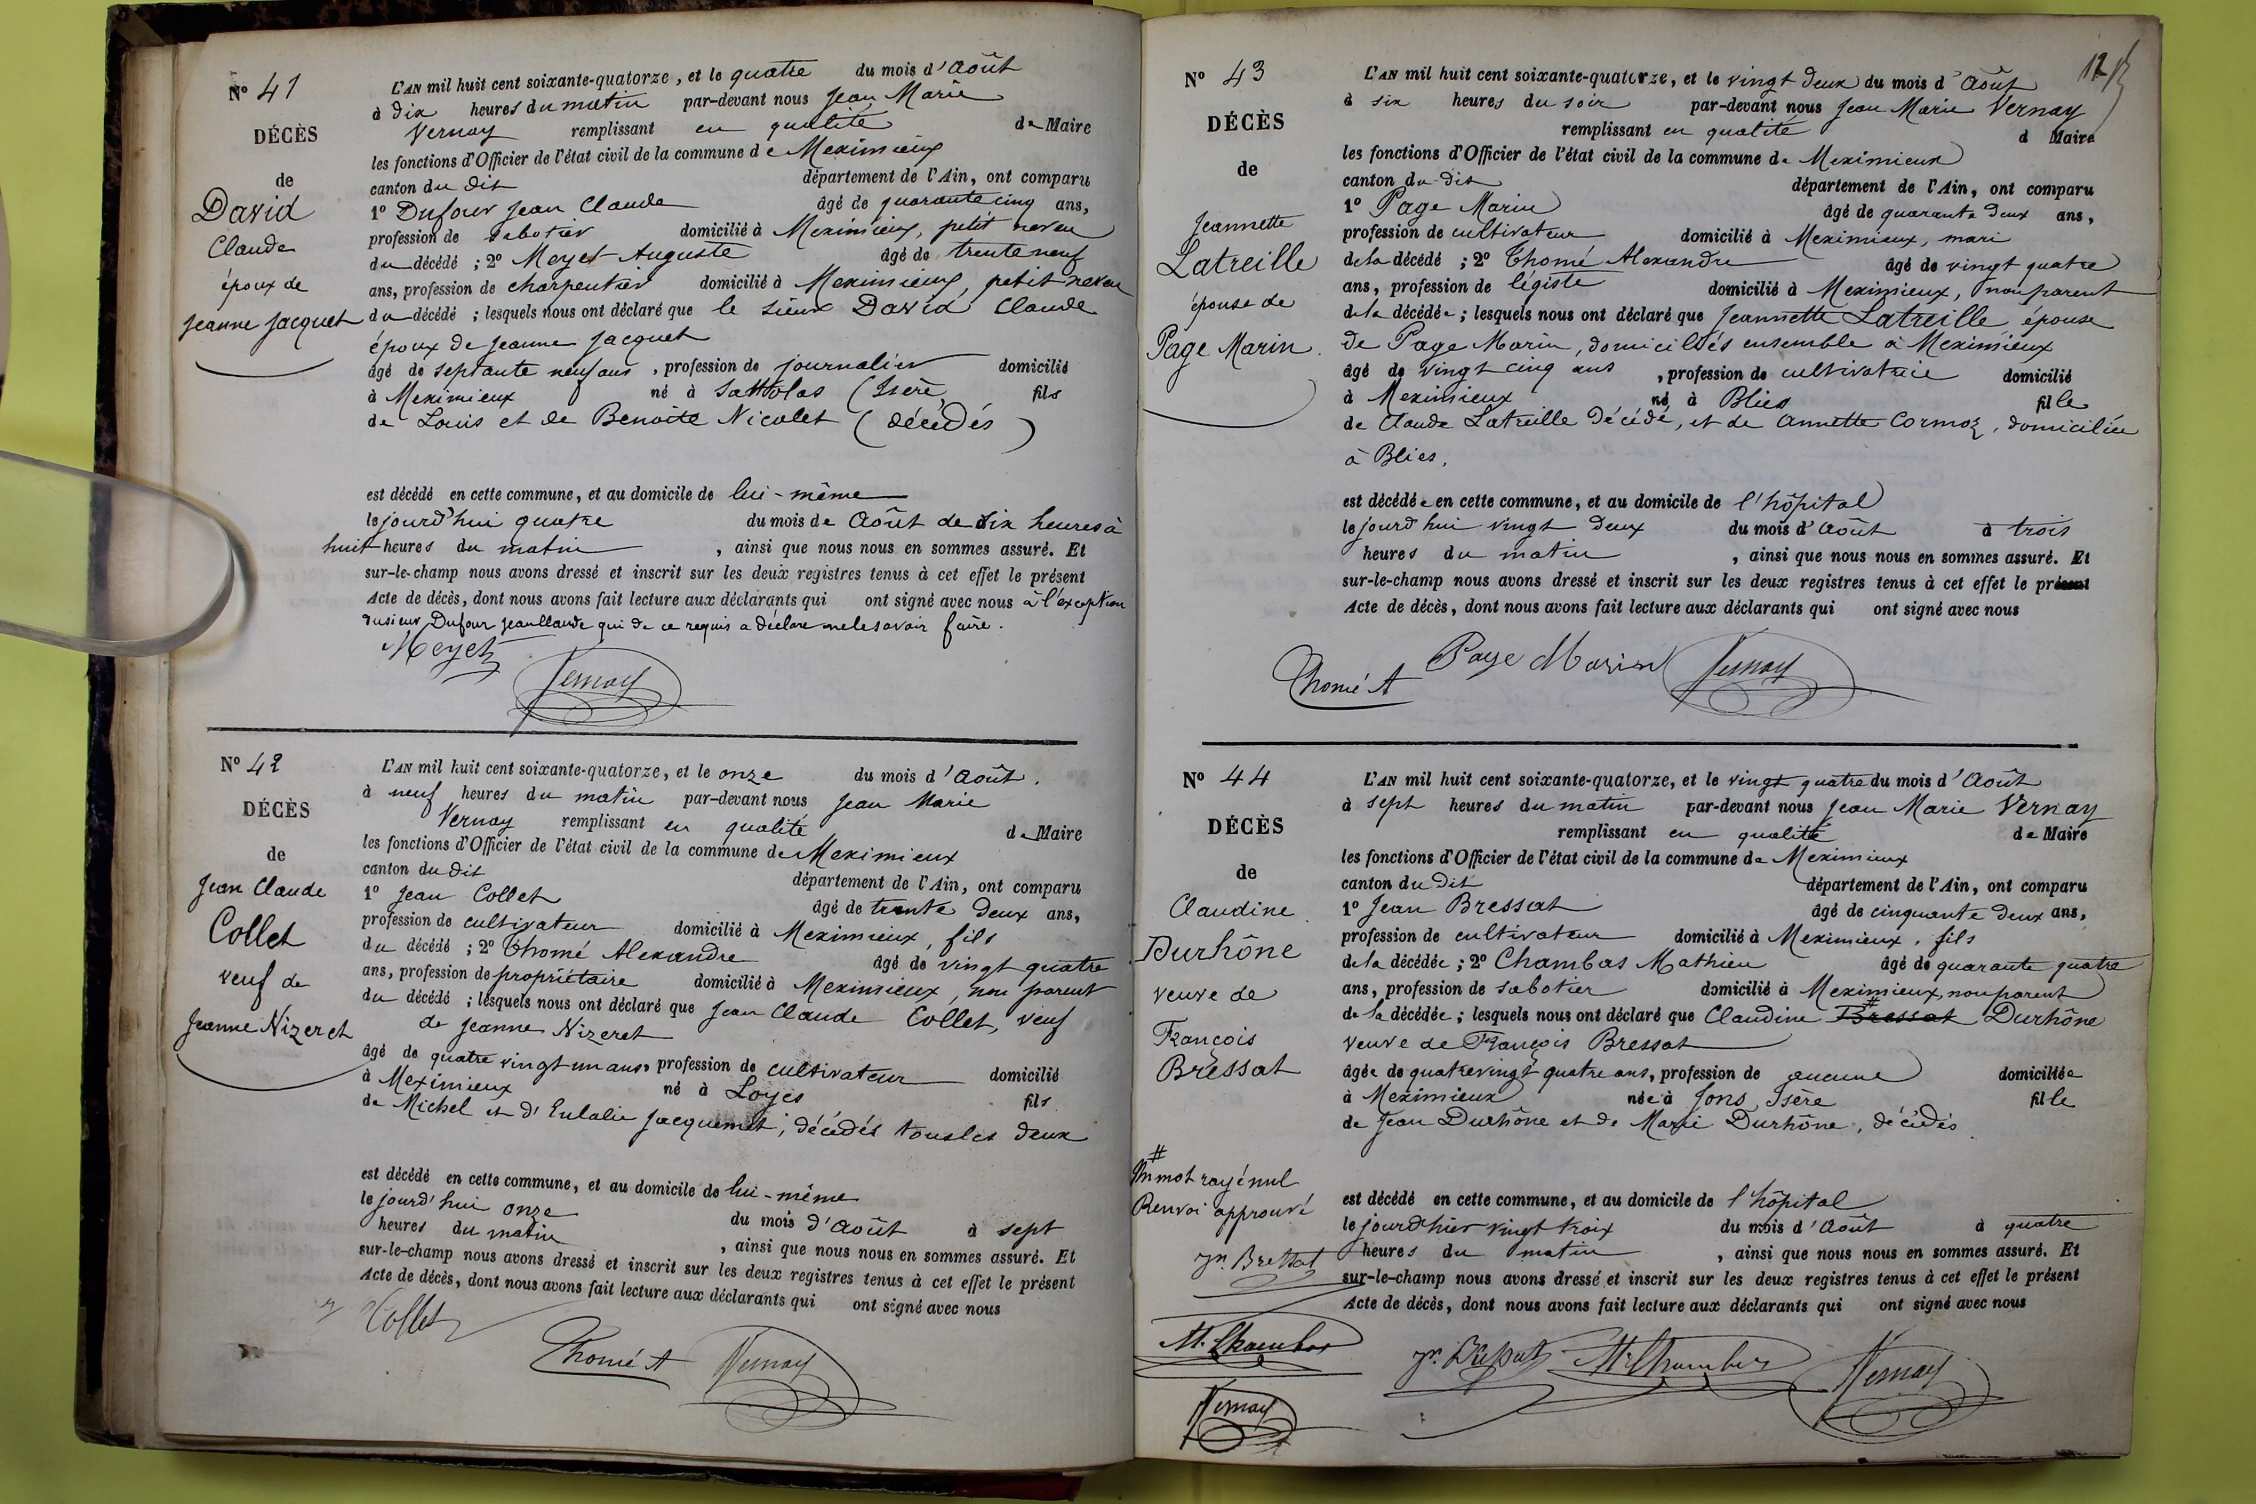 N° 41
DÉCÈS
de
David
Claude
époux de
Jeanne Jacquet
L'AN mil huit cent soixante-quatorze, et le quatre du mois d'Août
à dix heures du matin par-devant nous Jean Marie
Vernay remplissant en qualité de Maire
les fonctions d'Officier de l'état civil de la commune de Meximieux
canton du dit département de l'Ain, ont comparu
1° Dufour Jean Claude âgé de quarante cinq ans,
profession de sabotier domicilié à Meximieux, petit neveu
du décédé ; 2° Moyet Auguste âgé de trente neuf
ans, profession de charpentier domicilié à Meximieux, petit neveu
du décédé ; lesquels nous ont déclaré que le sieur David Claude
époux de Jeanne Jacquet
âgé de septante neuf ans, profession de journalier domicilié
à Meximieux né à Sattolas (Isère, fils
de Louis et de Benoite Nicolet (décédés)
est décédé en cette commune, et au domicile de lui-même
le jourd'hui quatre du mois de Août de dix heures à
huit heures du matin, ainsi que nous nous en sommes assuré. Et
sur-le-champ nous avons dressé et inscrit sur les deux registres tenus à cet effet le présent
Acte de décès, dont nous avons fait lecture aux déclarants qui ont signé avec nous à l'exception
du sieur Dufour Jean Claude qui de ce requis a déclaré ne le savoir faire.
Moyet
Vernay
N° 42
DÉCÈS
de
Jean Claude
Collet
veuf de
Jeanne Nizeret
L'AN mil huit cent soixante-quatorze, et le onze du mois d'Août.
à neuf heures du matin par-devant nous Jean Marie
Vernay remplissant en qualité de Maire
les fonctions d'Officier de l'état civil de la commune de Meximieux
canton du dit département de l'Ain, ont comparu
1° Jean Collet âgé de trente deux ans,
profession de cultivateur domicilié à Meximieux, fils
du décédé ; 2° Thomé Alexandre âgé de vingt quatre
ans, profession de propriétaire domicilié à Meximieux, non parent
du décédé ; lesquels nous ont déclaré que Jean Claude Collet, veuf
de Jeanne Nizeret
âgé de quatre vingt un ans, profession de cultivateur domicilié
à Meximieux né à Loyes fils
de Michel et d'Eulalie Jacquemet, décédés tous les deux
est décédé en cette commune, et au domicile de lui-même
le jourd'hui onze du mois d'Août à sept
heures du matin, ainsi que nous nous en sommes assuré. Et
sur-le-champ nous avons dressé et inscrit sur les deux registres tenus à cet effet le présent
Acte de décès, dont nous avons fait lecture aux déclarants qui ont signé avec nous
Collet
Thomé A
Vernay
N° 43
DÉCÈS
de
Jeannette
Latreille
épouse de
Page Marin.
L'AN mil huit cent soixante-quatorze, et le vingt deux du mois d'Août
à six heures du soir par-devant nous Jean Marie Vernay
remplissant en qualité d Maire
les fonctions d'Officier de l'état civil de la commune de Meximieux
canton du dit département de l'Ain, ont comparu
1° Page Marin âgé de quarante deux ans,
profession de cultivateur domicilié à Meximieux, mari
de la décédé ; 2° Thomé Alexandre âgé de vingt quatre
ans, profession de légiste domicilié à Meximieux, non parent
de la décédée ; lesquels nous ont déclaré que Jeannette Latreille, épouse
de Page Marin, domiciliés ensemble à Meximieux
âgé de vingt cinq ans, profession de cultivatrice domicilié
à Meximieux né à Blies fille
de Claude Latreille décédé, et de Annette Cormoz, domiciliée
à Blies.
est décédée en cette commune, et au domicile de l'hôpital
le jourd'hui vingt deux du mois d'Août à trois
heures du matin, ainsi que nous nous en sommes assuré. Et
sur-le-champ nous avons dressé et inscrit sur les deux registres tenus à cet effet le présent
Acte de décès, dont nous avons fait lecture aux déclarants qui ont signé avec nous
Thomé A
Page Marin
Vernay
N° 44
DÉCÈS
de
Claudine
Durhône
veuve de
François
Bressat
L'AN mil huit cent soixante-quatorze, et le vingt quatre du mois d'Août
à sept heures du matin par-devant nous Jean Marie Vernay
remplissant en qualité de Maire
les fonctions d'Officier de l'état civil de la commune de Meximieux
canton du dit département de l'Ain, ont comparu
1° Jean Bressat âgé de cinquante deux ans,
profession de cultivateur domicilié à Meximieux, fils
de la décédée ; 2° Chambas Mathieu âgé de quarante quatre
ans, profession de sabotier domicilié à Meximieux, non parent
de la décédée ; lesquels nous ont déclaré que Claudine # Bressat Durhône
veuve de François Bressat
âgée de quatre vingt quatre ans, profession de aucune domiciliée
à Meximieux née à Jons, Isère fille
de Jean Durhône et de Marie Durhône, décédés
est décédé en cette commune, et au domicile de l'hôpital
le jourd'hier vingt trois du mois d'Août à quatre
heures du matin, ainsi que nous nous en sommes assuré. Et
sur-le-champ nous avons dressé et inscrit sur les deux registres tenus à cet effet le présent
Acte de décès, dont nous avons fait lecture aux déclarants qui ont signé avec nous
# Un mot rayé nul
Renvoi approuvé
Jn. Bressat
M. Chambas
Vernay
Jn. Bressat
M. Chambas
Vernay